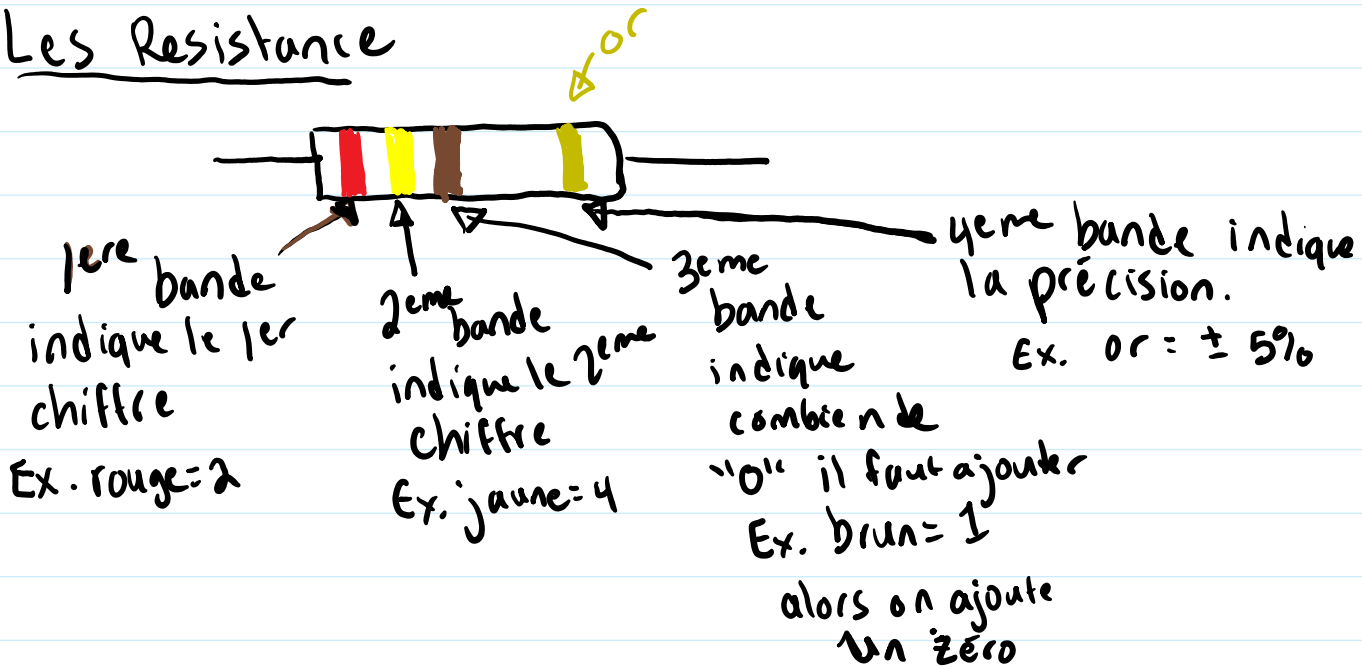 Les Resistance
or
1ere bande
indique le 1er
chiffre
Ex. rouge=2
2eme bande
indique le 2eme
chiffre
Ex. jaune=4
3eme
bande
indique
combien de
"0" il faut ajouter
Ex. brun=1
alors on ajoute
un zéro
4eme bande indique
la précision.
Ex. or = ± 5%